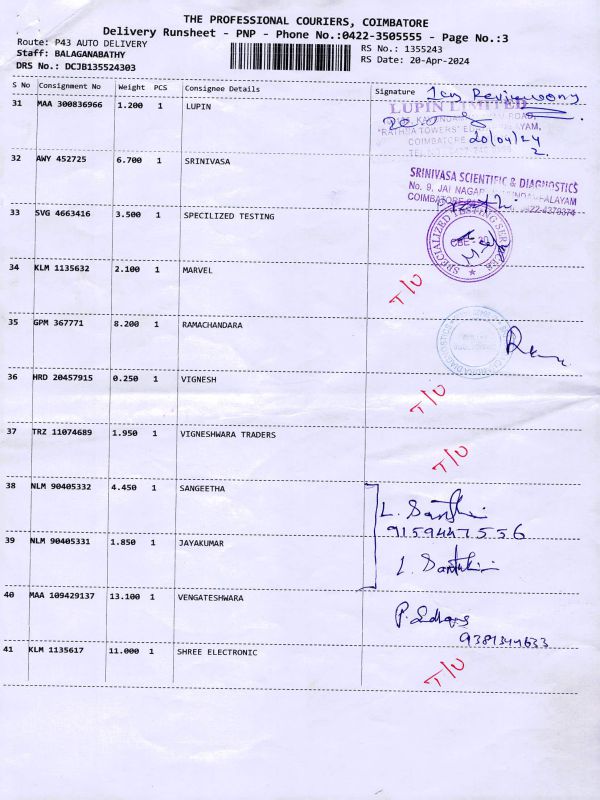 THE PROFESSIONAL COURIERS, COIMBATORE
Delivery Runsheet - PNP - Phone No.:0422-3505555 - Page No.:3
Route: P43 AUTO DELIVERY
Staff: BALAGANABATHY
DRS No.: DCJB135524303
RS No.: 1355243
RS Date: 20-Apr-2024
S No Consignment No Weight PCS Consignee Details Signature
31 MAA 300836966 1.200 1 LUPIN
LUPIN LIMITED
20/04/24
32 AWY 452725 6.700 1 SRINIVASA
SRINIVASA SCIENTIFIC & DIAGNOSTICS
No. 9, JAI NAGAR
33 SVG 4663416 3.500 1 SPECILIZED TESTING
SPECIALIZED TESTING SERVICES
34 KLM 1135632 2.100 1 MARVEL
T/U
35 GPM 367771 8.200 1 RAMACHANDARA
36 HRD 20457915 0.250 1 VIGNESH
T/U
37 TRZ 11074689 1.950 1 VIGNESHWARA TRADERS
T/U
38 NLM 90405332 4.450 1 SANGEETHA
L. Santhi
9159447556
39 NLM 90405331 1.850 1 JAYAKUMAR
L. Santhi
40 MAA 109429137 13.100 1 VENGATESHWARA
41 KLM 1135617 11.000 1 SHREE ELECTRONIC
T/U